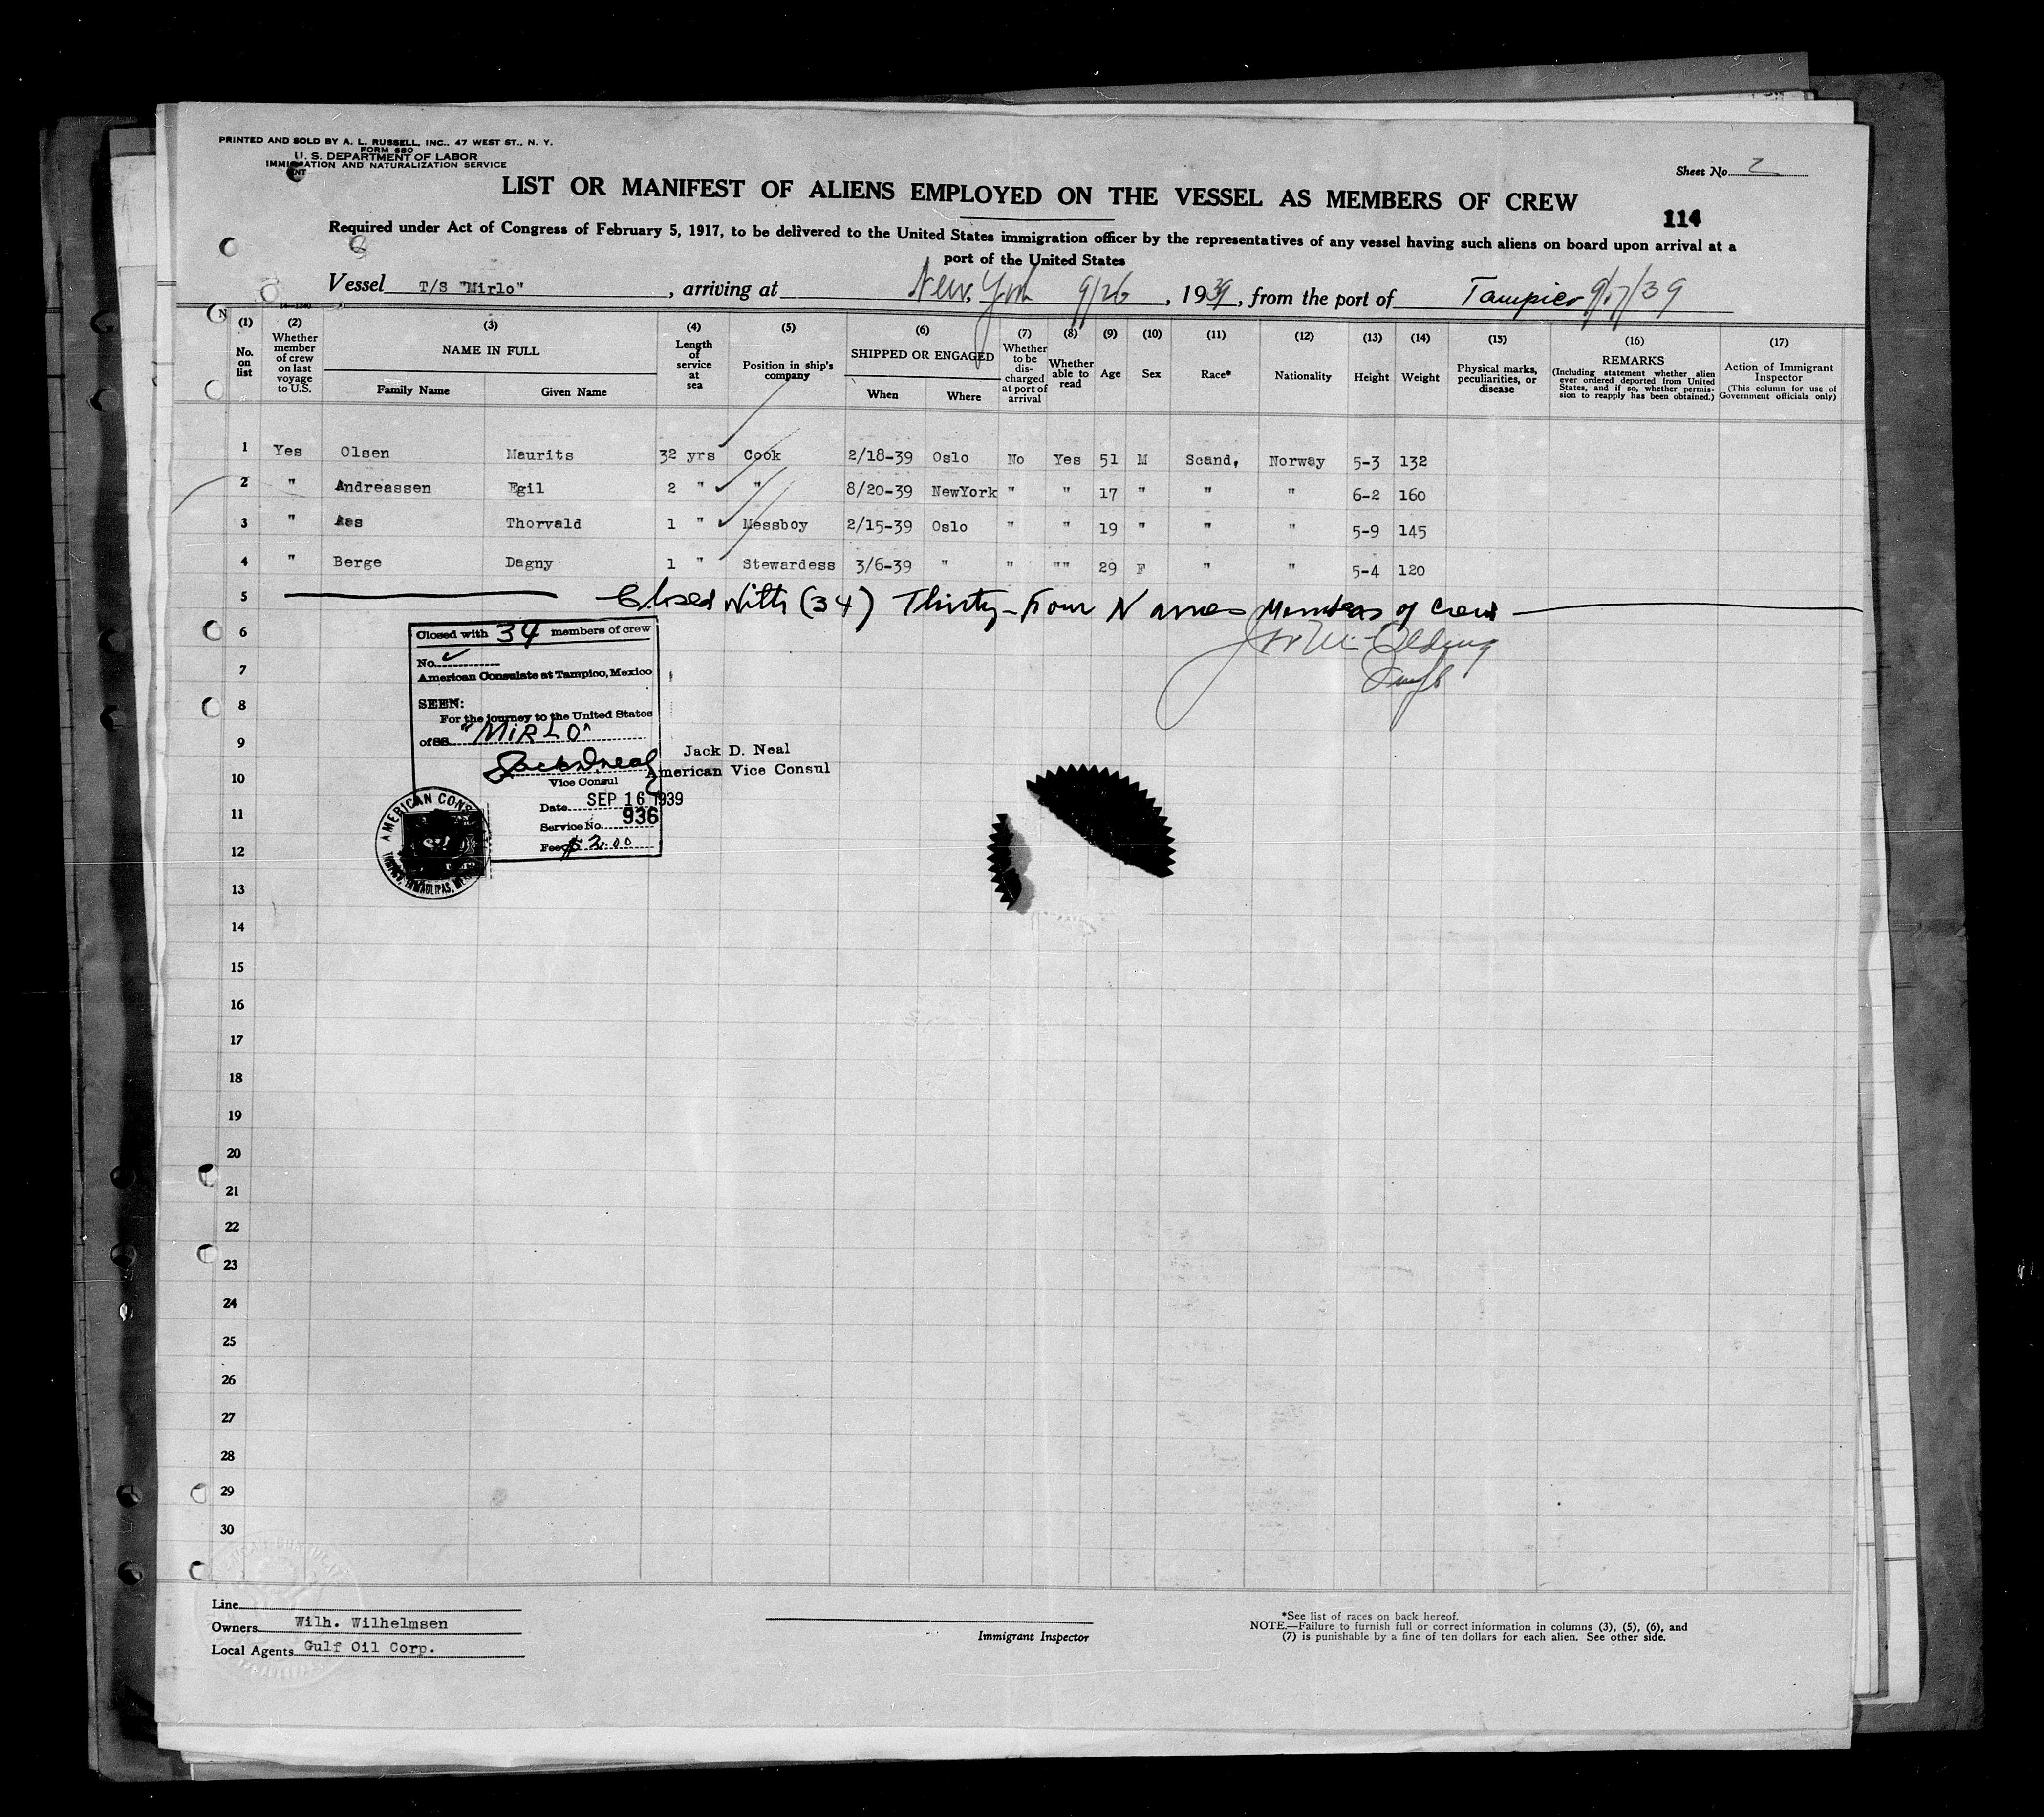 PRINTED AND SOLD BY A. L. RUSSELL, INC., 47 WEST ST., N. Y.
FORM 680
U. S. DEPARTMENT OF LABOR
IMMIGRATION AND NATURALIZATION SERVICE
Sheet No. 2
LIST OR MANIFEST OF ALIENS EMPLOYED ON THE VESSEL AS MEMBERS OF CREW
114
Required under Act of Congress of February 5, 1917, to be delivered to the United States immigration officer by the representatives of any vessel having such aliens on board upon arrival at a
port of the United States
Vessel T/S "Mirlo", arriving at New York 9/26, 1939, from the port of Tampico 9/17/39
(1) No. on list
(2) Whether member of crew on last voyage to U.S.
(3) NAME IN FULL Family Name Given Name
(4) Length of service at sea
(5) Position in ship's company
(6) SHIPPED OR ENGAGED When Where
(7) Whether to be discharged at port of arrival
(8) Whether able to read
(9) Age
(10) Sex
(11) Race*
(12) Nationality
(13) Height
(14) Weight
(15) Physical marks, peculiarities, or disease
(16) REMARKS (Including statement whether alien ever ordered deported from United States, and if so, whether permission to reapply has been obtained.)
(17) Action of Immigrant Inspector (This column for use of Government officials only)
1 Yes Olsen Maurits 32 yrs Cook 2/18-39 Oslo No Yes 51 M Scand, Norway 5-3 132
2 " Andreassen Egil 2 " " 8/20-39 NewYork " " 17 " " " 6-2 160
3 " Aas Thorvald 1 " Messboy 2/15-39 Oslo " " 19 " " " 5-9 145
4 " Berge Dagny 1 " Stewardess 3/6-39 " " "" 29 F " " 5-4 120
5 Closed with (34) Thirty-Four Names Members of Crew
6
7
8
9
10
11
12
13
14
15
16
17
18
19
20
21
22
23
24
25
26
27
28
29
30
Closed with 34 members of crew
No.
American Consulate at Tampico, Mexico
SEEN:
For the journey to the United States
of SS. "MIRLO"
Jack D. Neal
Vice Consul
Date SEP 16 1939
Service No. 936
Fee $ 2.00
Jack D. Neal
American Vice Consul
AMERICAN CONS
TAMAULIPAS,
Line
Owners Wilh. Wilhelmsen
Local Agents Gulf Oil Corp.
Immigrant Inspector
*See list of races on back hereof.
NOTE.—Failure to furnish full or correct information in columns (3), (5), (6), and
(7) is punishable by a fine of ten dollars for each alien. See other side.